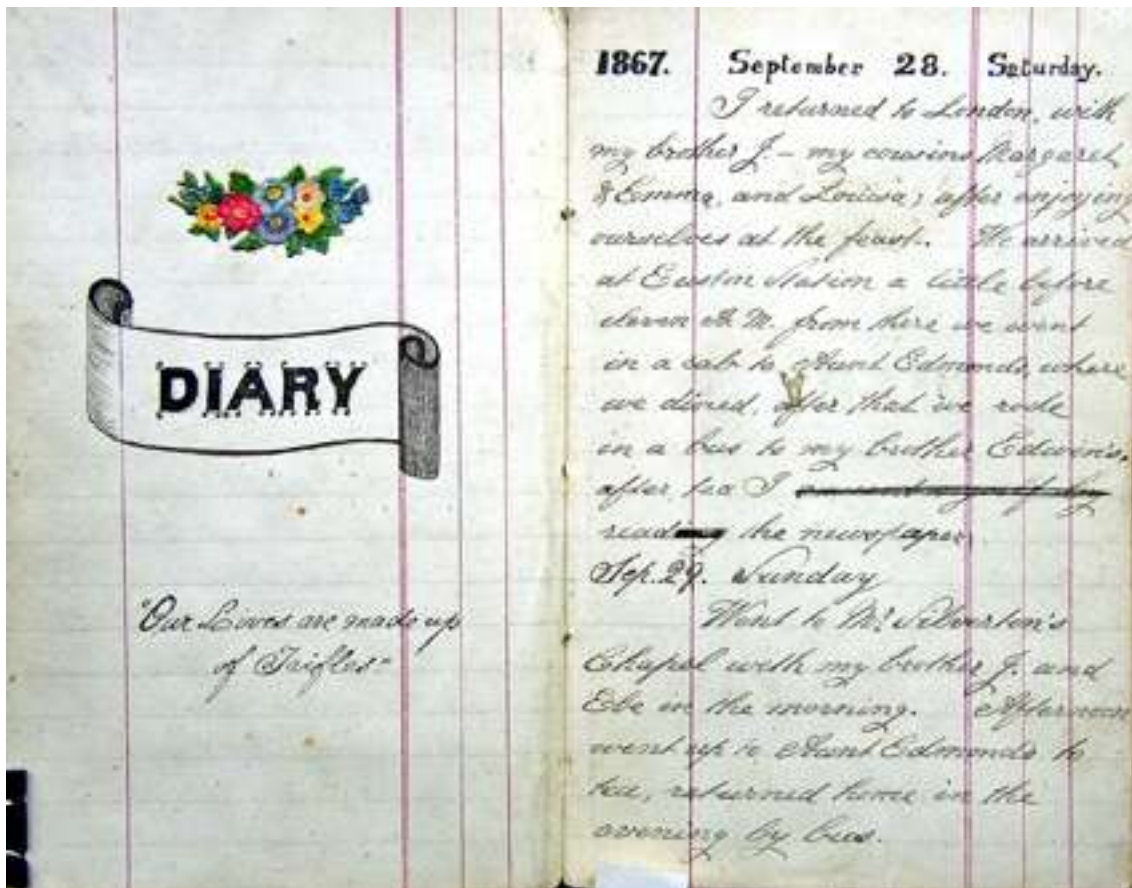 DIARY
"Our Lives are made up
of Trifles"
1867. September 28. Saturday.
I returned to London, with
my brother J. – my cousins Margaret
& Emma, and Louisa; after enjoying
ourselves at the feast. We arrived
at Euston Station a little before
eleven A.M. from there we went
in a cab to Aunt Edmonds, where
we dined, after that we rode
in a bus to my brother Edwin's,
after tea I
read the newspaper
Sep. 29. Sunday
Went to Mr Silverton's
Chapel with my brother J. and
Ebe in the morning. Afternoon
went up to Aunt Edmonds to
tea, returned home in the
evening by bus.